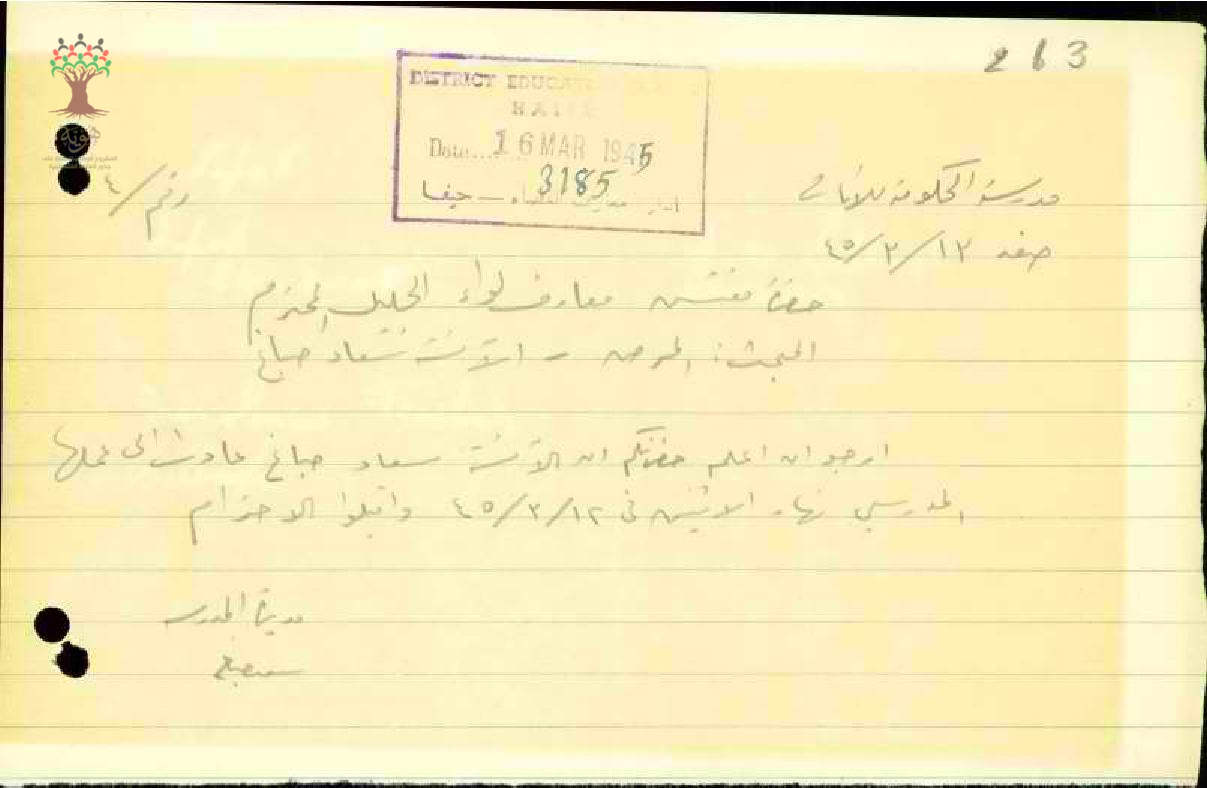 213
DISTRICT EDUCATION
HAIFA
Date.... 16 MAR 1945
3185
حيفا
هوية
مدرسة الحكومة للاناث
رقم / ٤
صفد ١٢/٣/٤٥
حضرة مفتش معارف لواء الجليل المحترم
المبحث: المرض - الآنسة سعاد صباغ
ارجو ان اعلم حضرتكم ان الآنسة سعاد صباغ عادت الى عملها
المدرسي نهار الاثنين في ١٢/٣/٤٥ واقبلوا الاحترام
مديرة المدرسة